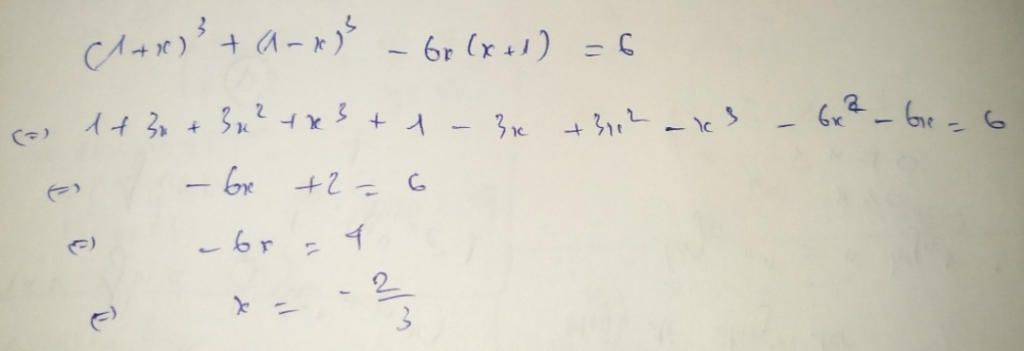 (1+x)³ + (1-x)³ - 6x(x+1) = 6
(=) 1 + 3x + 3x² + x³ + 1 - 3x + 3x² - x³ - 6x² - 6x = 6
(=) - 6x + 2 = 6
(=) - 6x = 4
(=) x = - 2/3